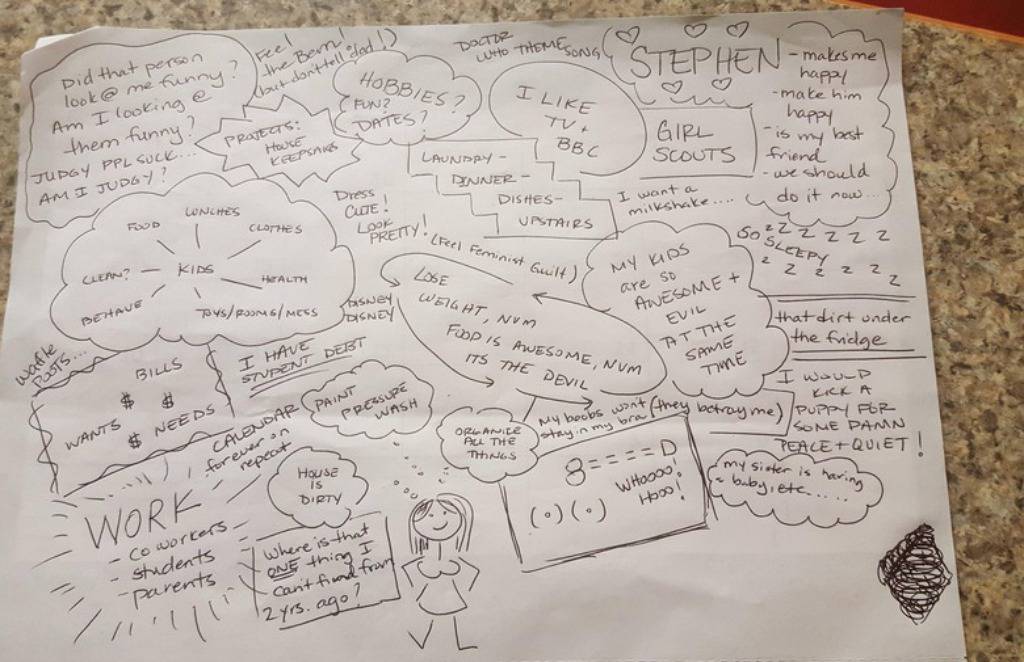 Did that person
look @ me funny?
Am I looking @
them funny?
JUDGY PPL SUCK...
AM I JUDGY?
Feel
the Bern!
but don't tell dad!)
PROJECTS:
HOUSE
KEEPSAKES
HOBBIES?
FUN?
DATES?
DOCTOR
WHO THEME
SONG
I LIKE
TV +
BBC
STEPHEN
- makes me
happy
- make him
happy
- is my best
friend
- we should
do it now...
GIRL
SCOUTS
LAUNDRY -
DINNER -
DISHES -
UPSTAIRS
I want a
milkshake....
SO
SLEEPY
z z z z z z
z z z z z z
FOOD
LUNCHES
CLOTHES
CLEAN?
KIDS
HEALTH
BEHAVE
TOYS/ROOMS/MESS
Dress
CUTE!
LOOK
PRETTY!
(Feel Feminist Guilt)
DISNEY
DISNEY
LOSE
WEIGHT, NVM
FOOD IS AWESOME, NVM
ITS THE DEVIL
MY KIDS
are so
AWESOME +
EVIL
AT THE
SAME
TIME
that dirt under
the fridge
BILLS
$ $
WANTS $ NEEDS
I HAVE
STUDENT DEBT
PAINT
PRESSURE
WASH
CALENDAR
forever on
repeat
HOUSE
IS
DIRTY
ORGANIZE
ALL THE
THINGS
My boobs won't
stay in my bra
(they betray me)
8====D
WHOOOO
HOOO!
(o)(o)
I WOULD
KICK A
PUPPY FOR
SOME DAMN
PEACE + QUIET!
my sister is having
a baby, etc.....
WORK
- co workers
- students
- parents
Where is that
ONE thing I
can't find from
2 yrs. ago?